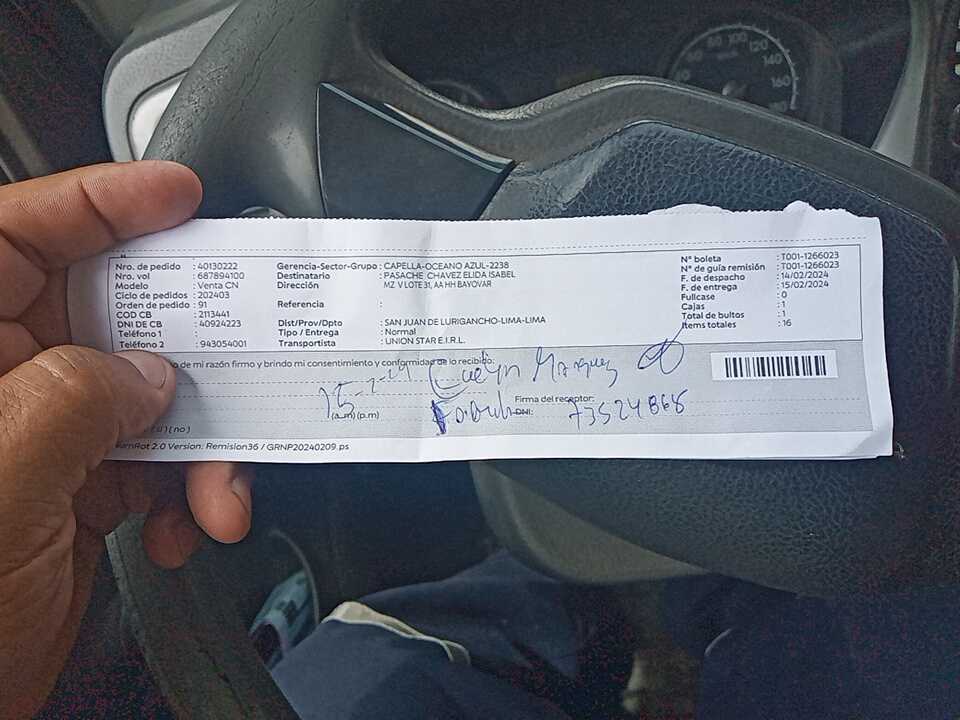 Nro. de pedido : 40130222
Nro. vol : 687894100
Modelo : Venta CN
Ciclo de pedidos : 202403
Orden de pedido : 91
COD CB : 2113441
DNI DE CB : 40924223
Teléfono 1 :
Teléfono 2 : 943054001
Gerencia-Sector-Grupo : CAPELLA-OCEANO AZUL-2238
Destinatario : PASACHE CHAVEZ ELIDA ISABEL
Dirección MZ V LOTE 31, AA HH BAYOVAR
Referencia :
Dist/Prov/Dpto : SAN JUAN DE LURIGANCHO-LIMA-LIMA
Tipo / Entrega : Normal
Transportista : UNION STAR E.I.R.L.
N° boleta : T001-1266023
N° de guía remisión : T001-1266023
F. de despacho : 14/02/2024
F. de entrega : 15/02/2024
Fullcase : 0
Cajas : 1
Total de bultos : 1
Items totales : 16
o de mi razón firmo y brindo mi consentimiento y conformidad de lo recibido:
Marquez
(a.m)(p.m)
Firma del receptor:
DNI: 73524868
( no )
2.0 Version: Remision36 / GRNP20240209.ps
20 100 120 140 160